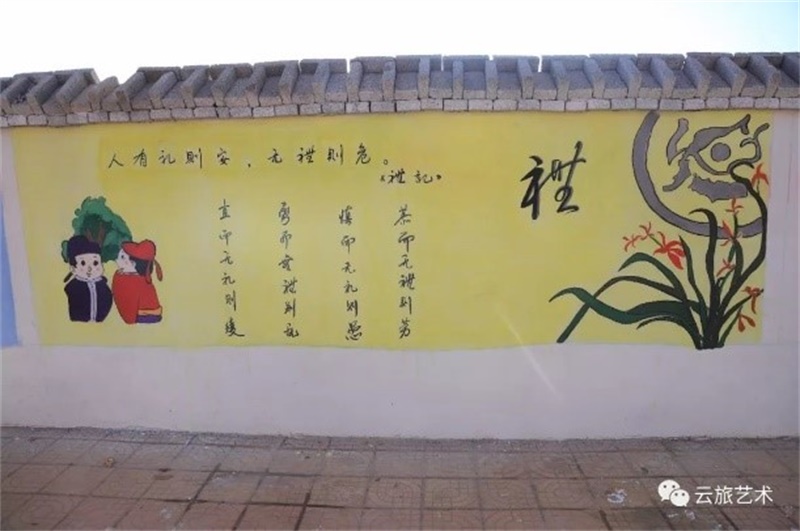 人有礼则安，无禮则危。
《禮記》
禮
恭而无禮则劳
慎而无礼则葸
勇而無禮则乱
直而无礼则绞
云旅艺术